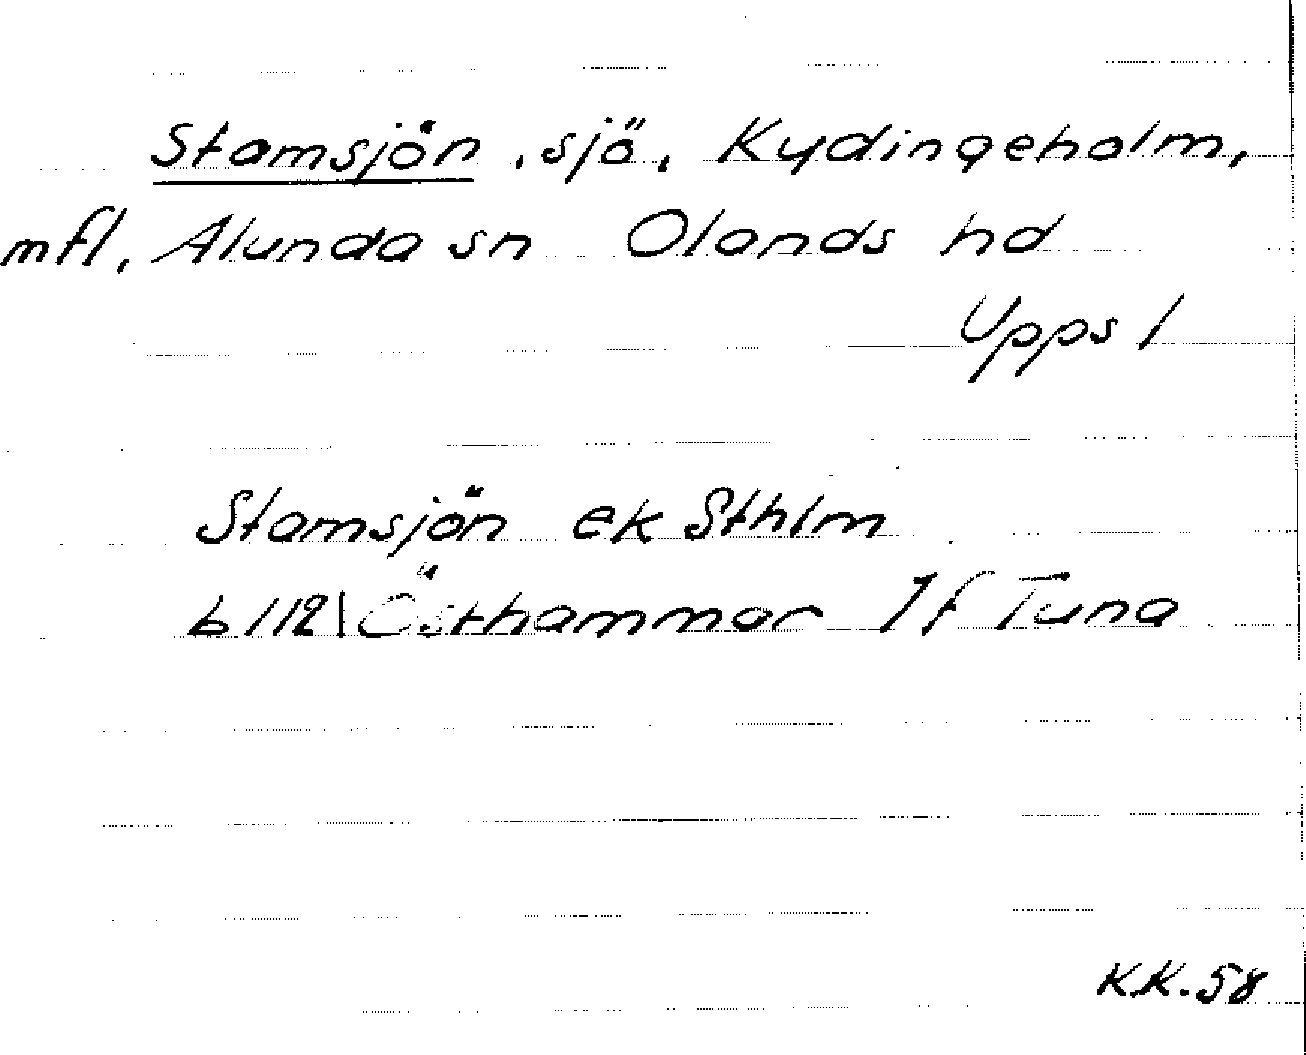 Stamsjön, sjö, Kydingeholm,
mfl, Alunda sn Olands hd
Upps l
Stamsjön ek Sthlm
b 112 Östhammar Jf Tuna
KK. 58